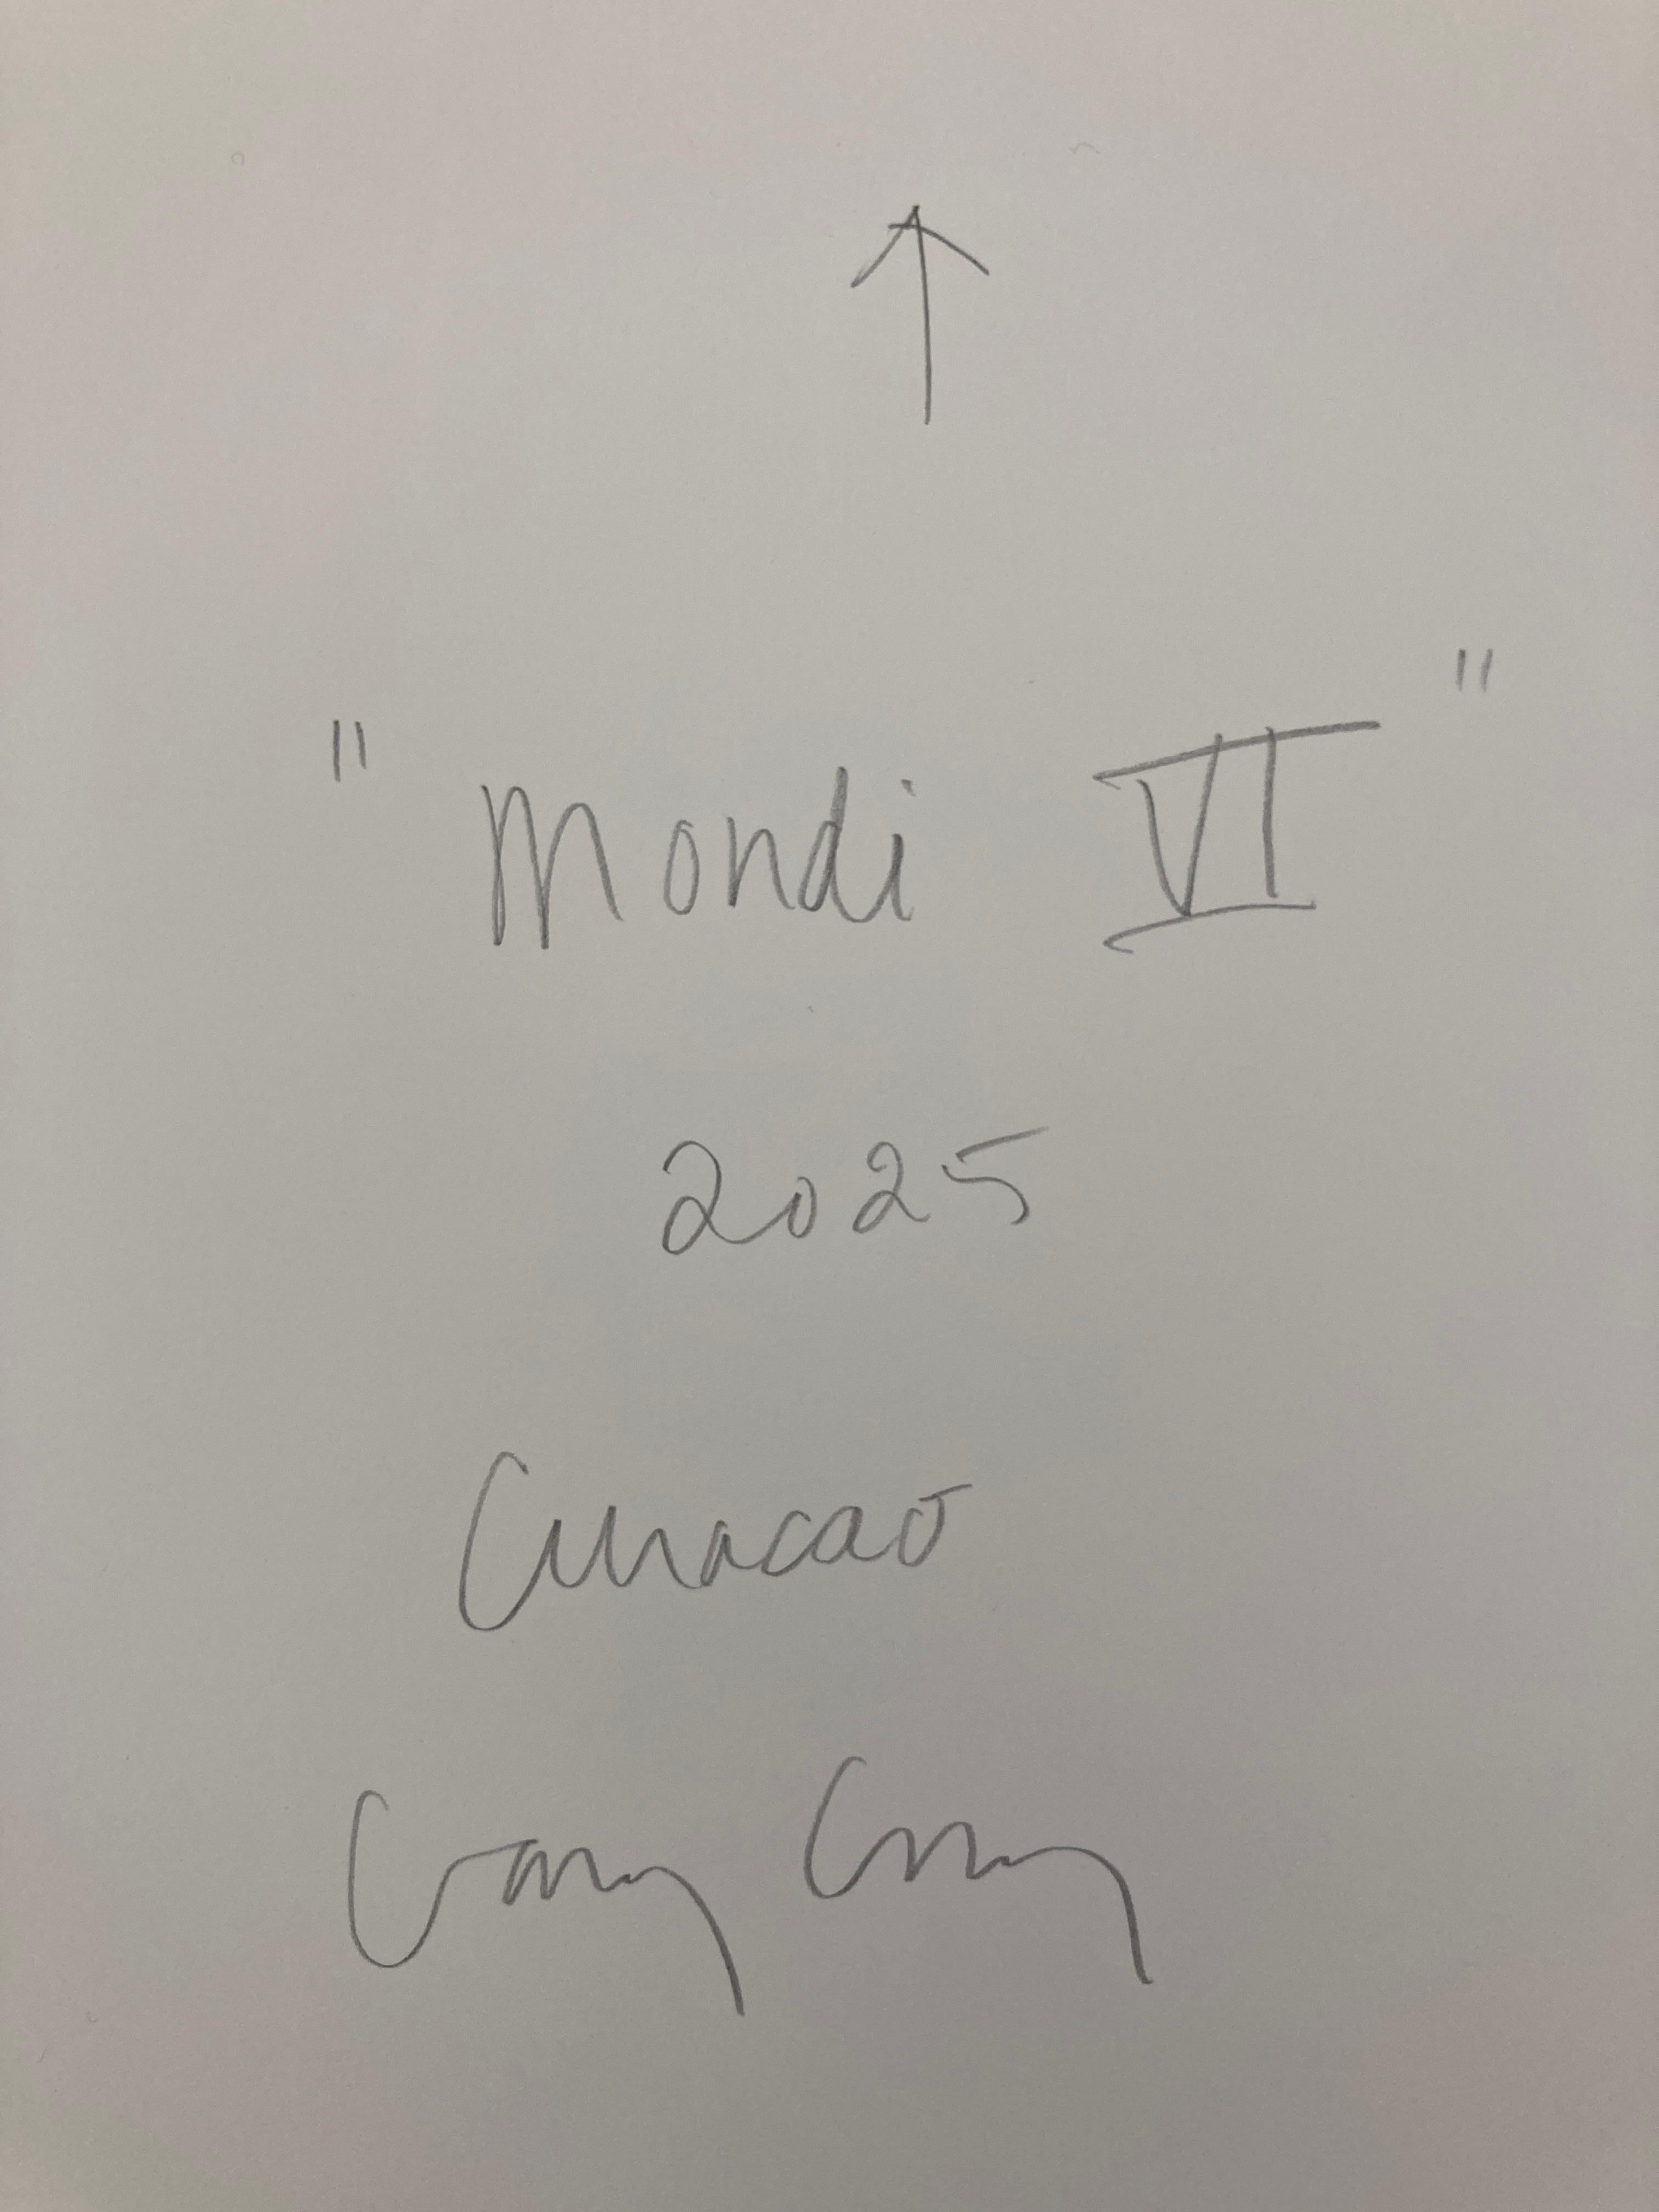 "Mondi VI"
2025
Curacao